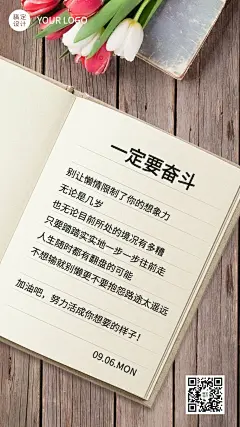 搞定设计
YOUR LOGO
一定要奋斗
别让懒惰限制了你的想象力
无论是几岁
也无论目前所处的境况有多糟
只要踏踏实实地一步一步往前走
人生随时都有翻盘的可能
不想输就别懒更不要抱怨路途太遥远
加油吧，努力活成你想要的样子！
09.06.MON